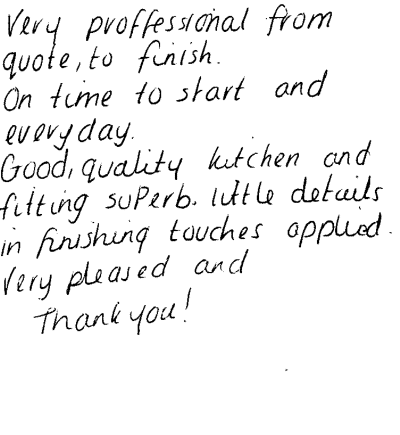 Very proffessional from
quote, to finish.
On time to start and
everyday.
Good, quality kitchen and
fitting superb. little details
in finishing touches applied.
Very pleased and
Thank you!